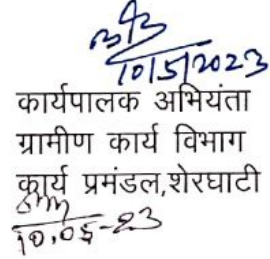 10/5/2023
कार्यपालक अभियंता
ग्रामीण कार्य विभाग
कार्य प्रमंडल,शेरघाटी
10.05-23